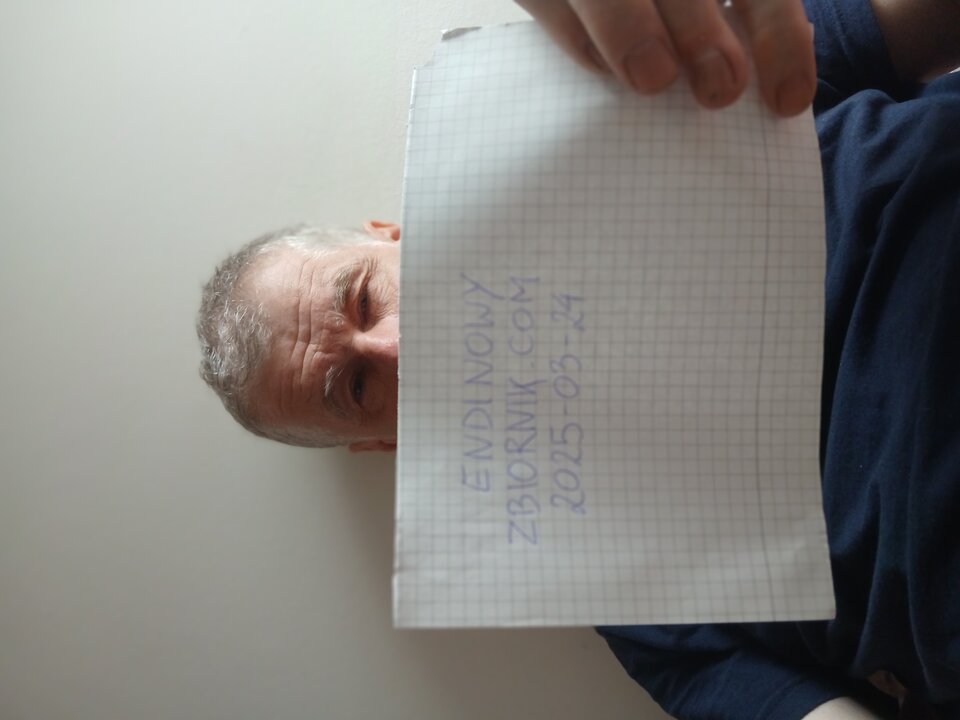 ENDI NOWY
ZBIORNIK.COM
2025-03-24